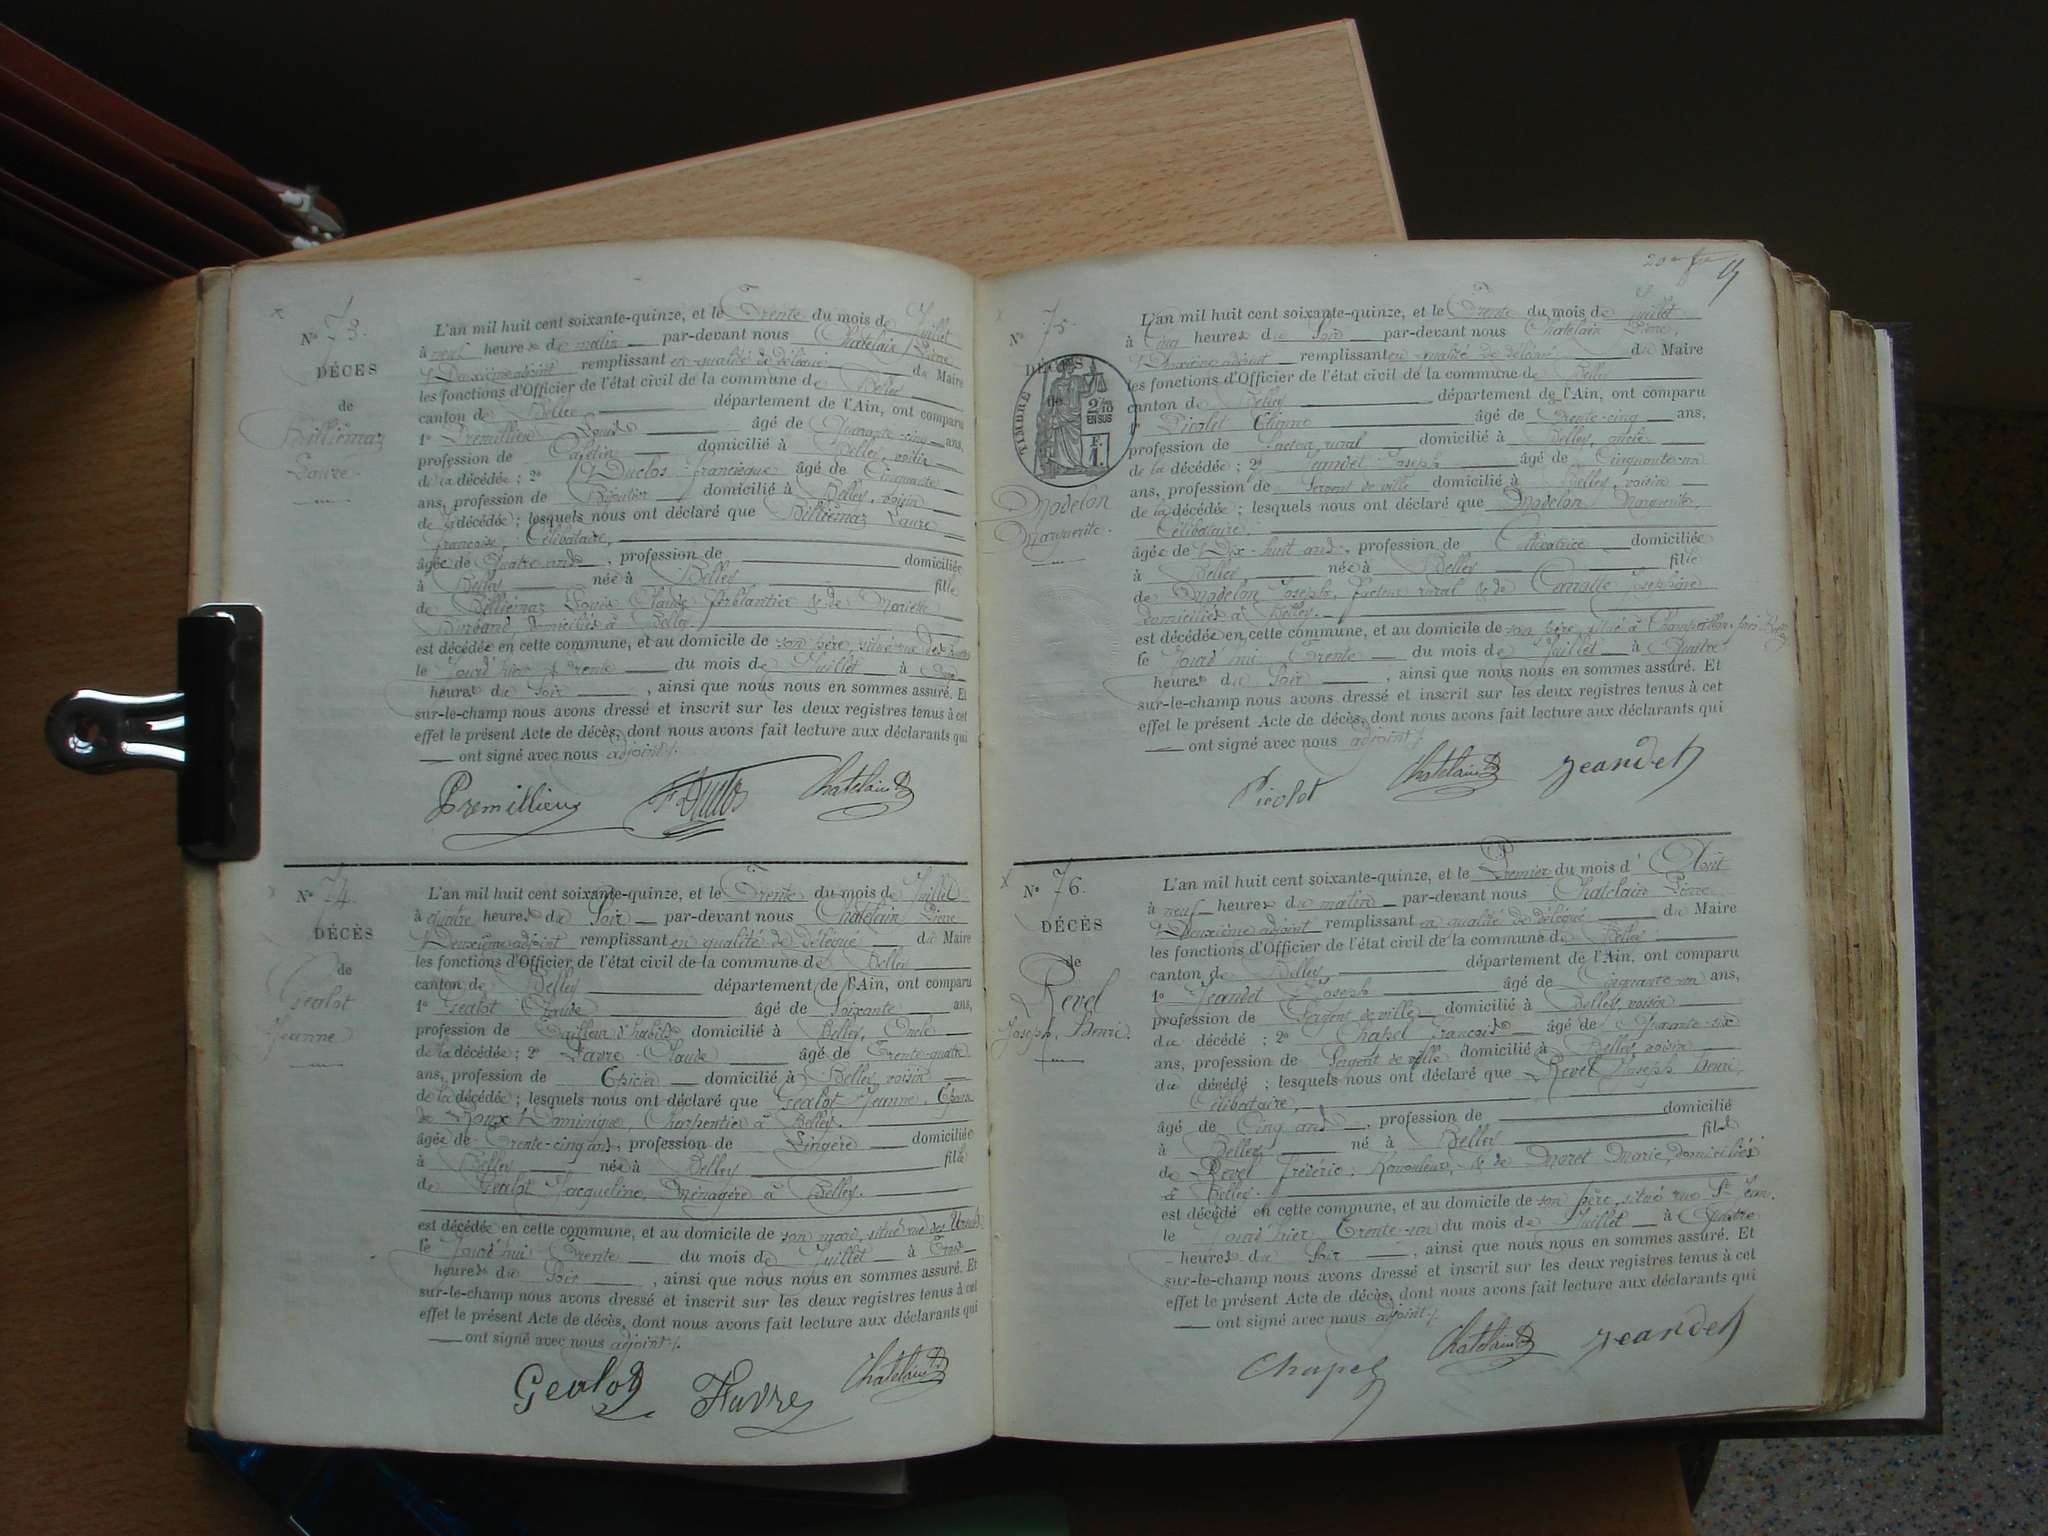 N° 73.
DÉCÈS
de
Billiémaz
Laure
L'an mil huit cent soixante-quinze, et le Trente du mois de Juillet
à neuf heures du matin par-devant nous Chatelain Pierre
Deuxième adjoint remplissant en qualité de délégué du Maire
les fonctions d'Officier de l'état civil de la commune de Belley
canton de Belley département de l'Ain, ont comparu
1° Premillieu Louis âgé de Quarante-cinq ans,
profession de Cafetier domicilié à Belley, voisin
de la décédée ; 2° Duclos françois âgé de Cinquante
ans, profession de Bijoutier domicilié à Belley, voisin
de la décédée ; lesquels nous ont déclaré que Billiémaz Laure
françoise, Célibataire,
âgée de Quatre ans, profession de domiciliée
à Belley née à Belley fille
de Billiémaz Louis Claude ferblantier & de Mariette
domiciliés à Belley.
est décédée en cette commune, et au domicile de son père, situé rue des
le jourd'hier trente du mois de Juillet à
heures du Soir, ainsi que nous nous en sommes assuré. Et
sur-le-champ nous avons dressé et inscrit sur les deux registres tenus à cet
effet le présent Acte de décès, dont nous avons fait lecture aux déclarants qui
ont signé avec nous adjoint ./.
Premillieu F Duclos Chatelain
N° 74.
DÉCÈS
de
Gealot
Jeanne
L'an mil huit cent soixante-quinze, et le Trente du mois de Juillet
à quatre heures du Soir par-devant nous Chatelain Pierre
Deuxième adjoint remplissant en qualité de délégué du Maire
les fonctions d'Officier de l'état civil de la commune de Belley
canton de Belley département de l'Ain, ont comparu
1° Gealot Claude âgé de Soixante ans,
profession de Tailleur d'habits domicilié à Belley, Oncle
de la décédée ; 2° Favre Claude âgé de Trente-quatre
ans, profession de Epicier domicilié à Belley, voisin
de la décédée ; lesquels nous ont déclaré que Gealot Jeanne, Epouse
de Roux Dominique, Charpentier à Belley.
âgée de Trente-cinq ans, profession de Lingère domiciliée
à Belley née à Belley fille
de Gealot Jacqueline, Ménagère à Belley.
est décédée en cette commune, et au domicile de son mari, situé rue des
le Jourd'hui Trente du mois de Juillet à Trois
heures du Soir, ainsi que nous nous en sommes assuré. Et
sur-le-champ nous avons dressé et inscrit sur les deux registres tenus à cet
effet le présent Acte de décès, dont nous avons fait lecture aux déclarants qui
ont signé avec nous adjoint ./.
Gealot Favre Chatelain
N° 75.
DÉCÈS
de
TIMBRE
2/10
EN SUS
F.
1.
Modelon
Marguerite.
L'an mil huit cent soixante-quinze, et le Trente du mois de Juillet
à Cinq heures du Soir par-devant nous Chatelain Pierre,
Deuxième adjoint remplissant en qualité de délégué du Maire
les fonctions d'Officier de l'état civil de la commune de Belley
canton de Belley département de l'Ain, ont comparu
1° Picolet âgé de Trente-cinq ans,
profession de facteur rural domicilié à Belley, oncle
de la décédée ; 2° Jeandet Joseph âgé de Cinquante-un
ans, profession de Sergent de ville domicilié à Belley, voisin
de la décédée ; lesquels nous ont déclaré que Modelon Marguerite,
Célibataire,
âgée de Dix-huit ans, profession de domiciliée
à Belley née à Belley fille
de Modelon Joseph, facteur rural & de Joséphine
domiciliés à Belley.
est décédée en cette commune, et au domicile de son père, situé à près Belley
le Jourd'hui Trente du mois de Juillet à Quatre
heures du Soir, ainsi que nous nous en sommes assuré. Et
sur-le-champ nous avons dressé et inscrit sur les deux registres tenus à cet
effet le présent Acte de décès, dont nous avons fait lecture aux déclarants qui
ont signé avec nous adjoint ./.
Picolet Chatelain Jeandet
N° 76.
DÉCÈS
de
Revel
Joseph, Henri.
L'an mil huit cent soixante-quinze, et le Premier du mois d'Août
à neuf heures du matin par-devant nous Chatelain Pierre
Deuxième adjoint remplissant en qualité de délégué du Maire
les fonctions d'Officier de l'état civil de la commune de Belley
canton de Belley, département de l'Ain, ont comparu
1° Jeandet Joseph âgé de Cinquante-un ans,
profession de Sergent de ville domicilié à Belley, voisin
du décédé ; 2° Chapel François âgé de Quarante-six
ans, profession de Sergent de ville domicilié à Belley, voisin
du décédé ; lesquels nous ont déclaré que Revel Joseph Henri,
Célibataire,
âgé de Cinq ans, profession de domicilié
à Belley né à Belley fils
de Revel frédéric, & de Moret Marie, domiciliés
à Belley.
est décédé en cette commune, et au domicile de son père, situé rue St Jean.
le Jourd'hier Trente-un du mois de Juillet à Quatre
heures du Soir, ainsi que nous nous en sommes assuré. Et
sur-le-champ nous avons dressé et inscrit sur les deux registres tenus à cet
effet le présent Acte de décès, dont nous avons fait lecture aux déclarants qui
ont signé avec nous adjoint ./.
Chapel Chatelain Jeandet